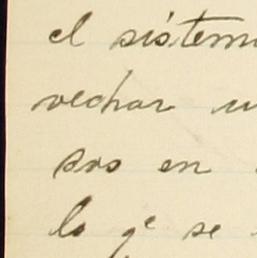 el sistem
vechar u
sos en
lo qe se